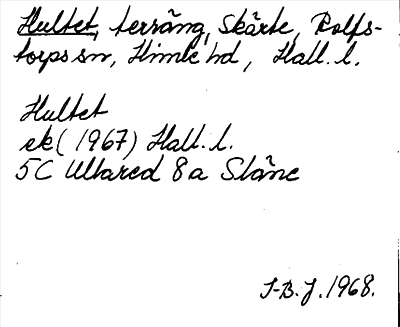 Hultet, terräng, Skärte, Rolfs-
torps sn, Himle hd, Hall. l.
Hultet
ek (1967) Hall. l.
5C Ullared 8a Släne
I-B. J. 1968.